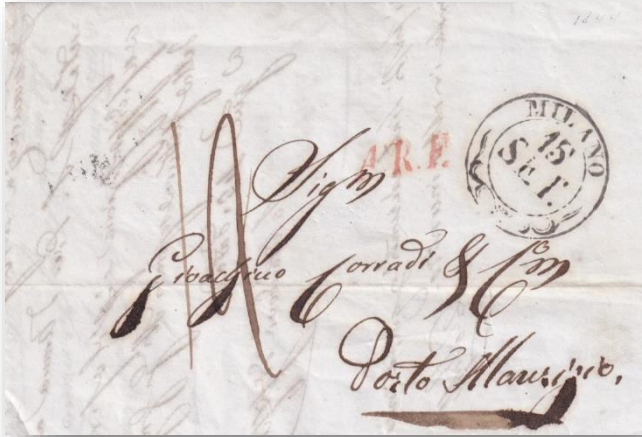 MILANO
15
Set.
A.R.F.
Sigri
Gioachino Corradi & Cm
Porto Maurizio.